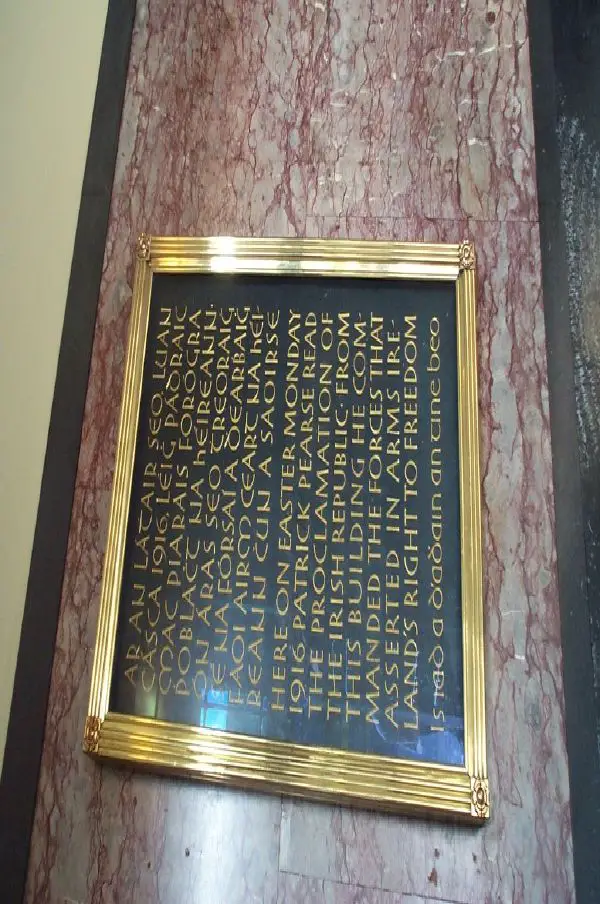 AR AN LÁṪAIR SEO, LUAN
CÁSCA 1916, LÉIĠ PÁDRAIC
MAC PIARAIS FOROGRA
POBLAĊT NA hÉIREANN
ÓN ÁRAS SEO TREORAIĠ
SÉ NA FÓRSAÍ A ḊEARḂAIĠ
FAOI AIRM CEART NA hÉI-
REANN ĊUN A SAOIRSE
HERE ON EASTER MONDAY
1916 PATRICK PEARSE READ
THE PROCLAMATION OF
THE IRISH REPUBLIC. FROM
THIS BUILDING HE COM-
MANDED THE FORCES THAT
ASSERTED IN ARMS IRE-
LAND'S RIGHT TO FREEDOM
an tine beo